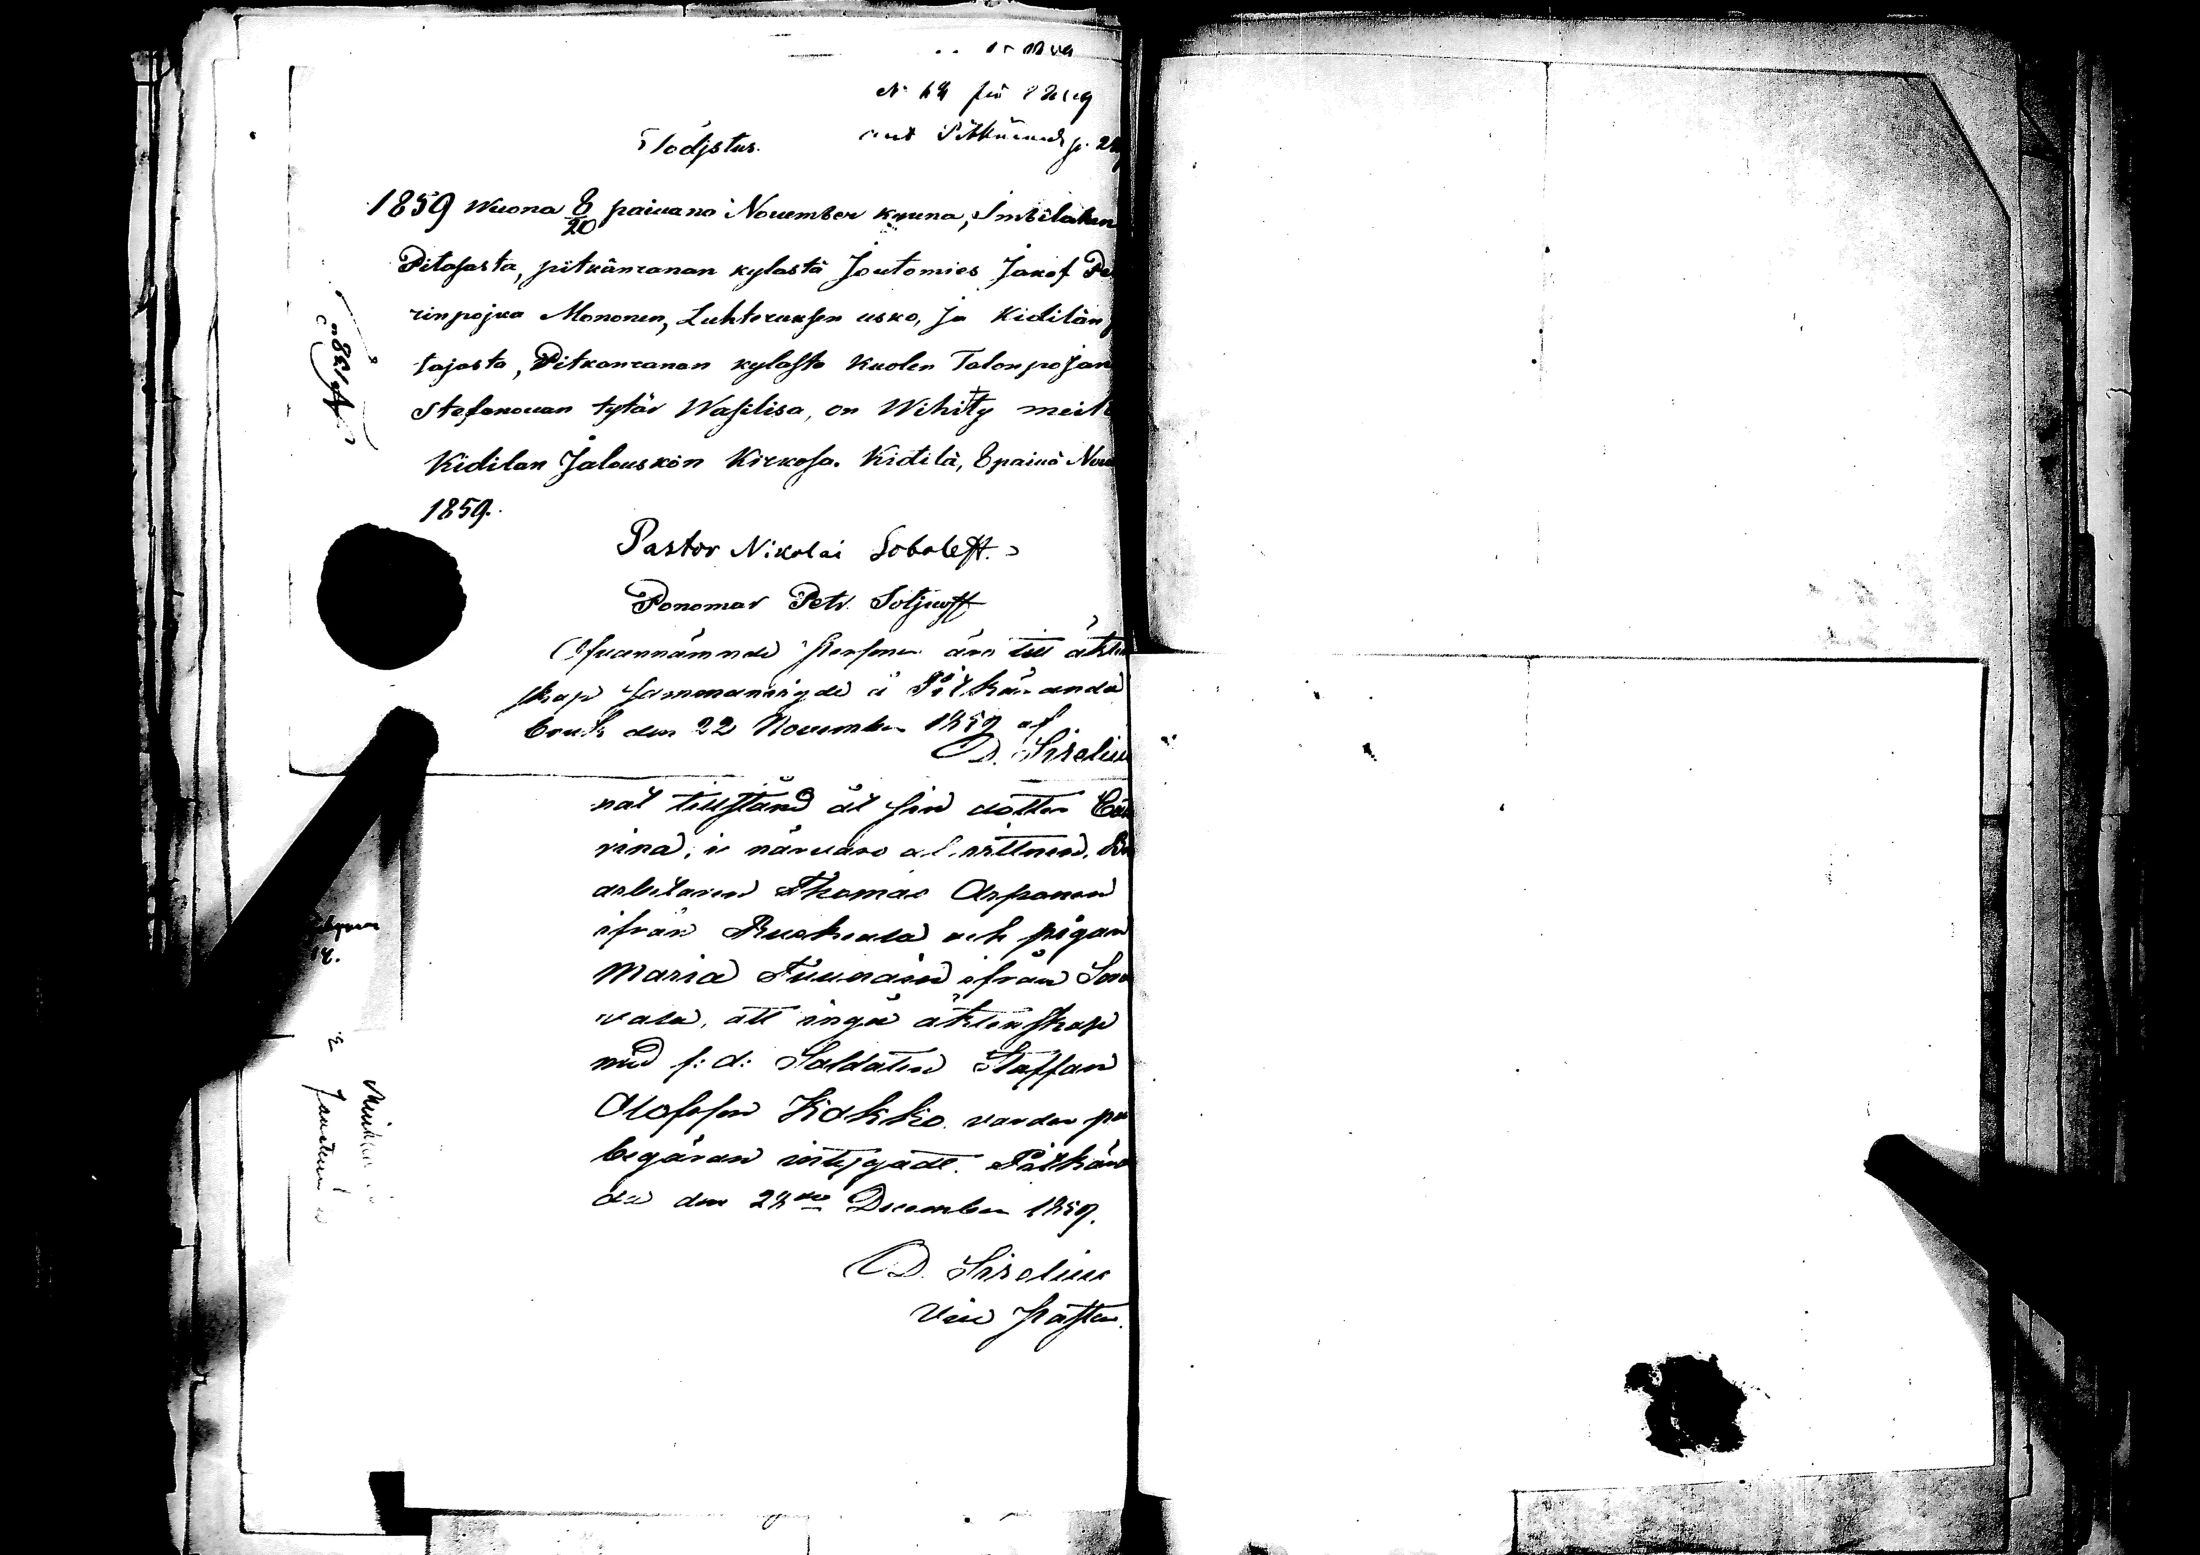 Todjstus.
1859 Wuona 8/20 paiwano November kuuna, Imbilahen
Pitajasta, pitkänranan kylastä Joutomies Jakof Pe
rinpojka Mononen, Luhteruksen usko, ja Kidilän
tajasta, Pitkanranan kylasta Kuolen Talonpojan
Stefanowan tytär Wasilisa, on Wihitty meit
Kidilan Jalouskon Kirkosa. Kidilä, 8 paiwä Now
1859.
Pastor Nikolai Soboleff.
Ponomar Petr. Sotjeoff
Ofvannämnde Personer äro till äkten
skap sammanvigde å Pitkäranda
bruk den 22 November 1859 af
D. Sirelius
nat tillstånd åt sin dotter
rina, i närvaro af vittnen,
arbetaren Thomas Asponen
ifrån Ruskeala och pigan
Maria Tuunain ifrån
vala, att ingå äktenskap
med f: d: Soldaten Staffan
Olofsson Kokko varder på
begäran intygadt. Pitkäran
da den December 1859.
D. Sirelius
Vice Pastor.